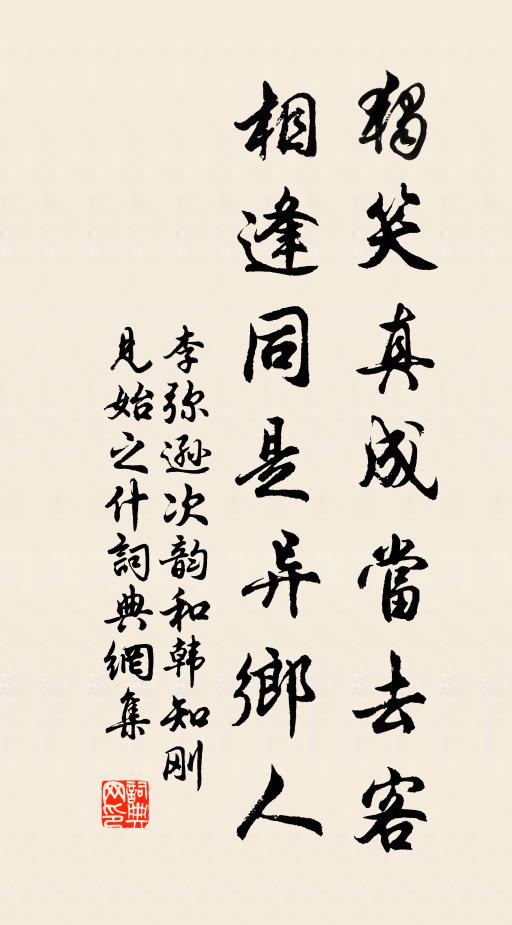 獨笑真成當去客
相逢同是异鄉人
李弥遜次韵和韩知刚
見始之什詞典網集
詞典
网印